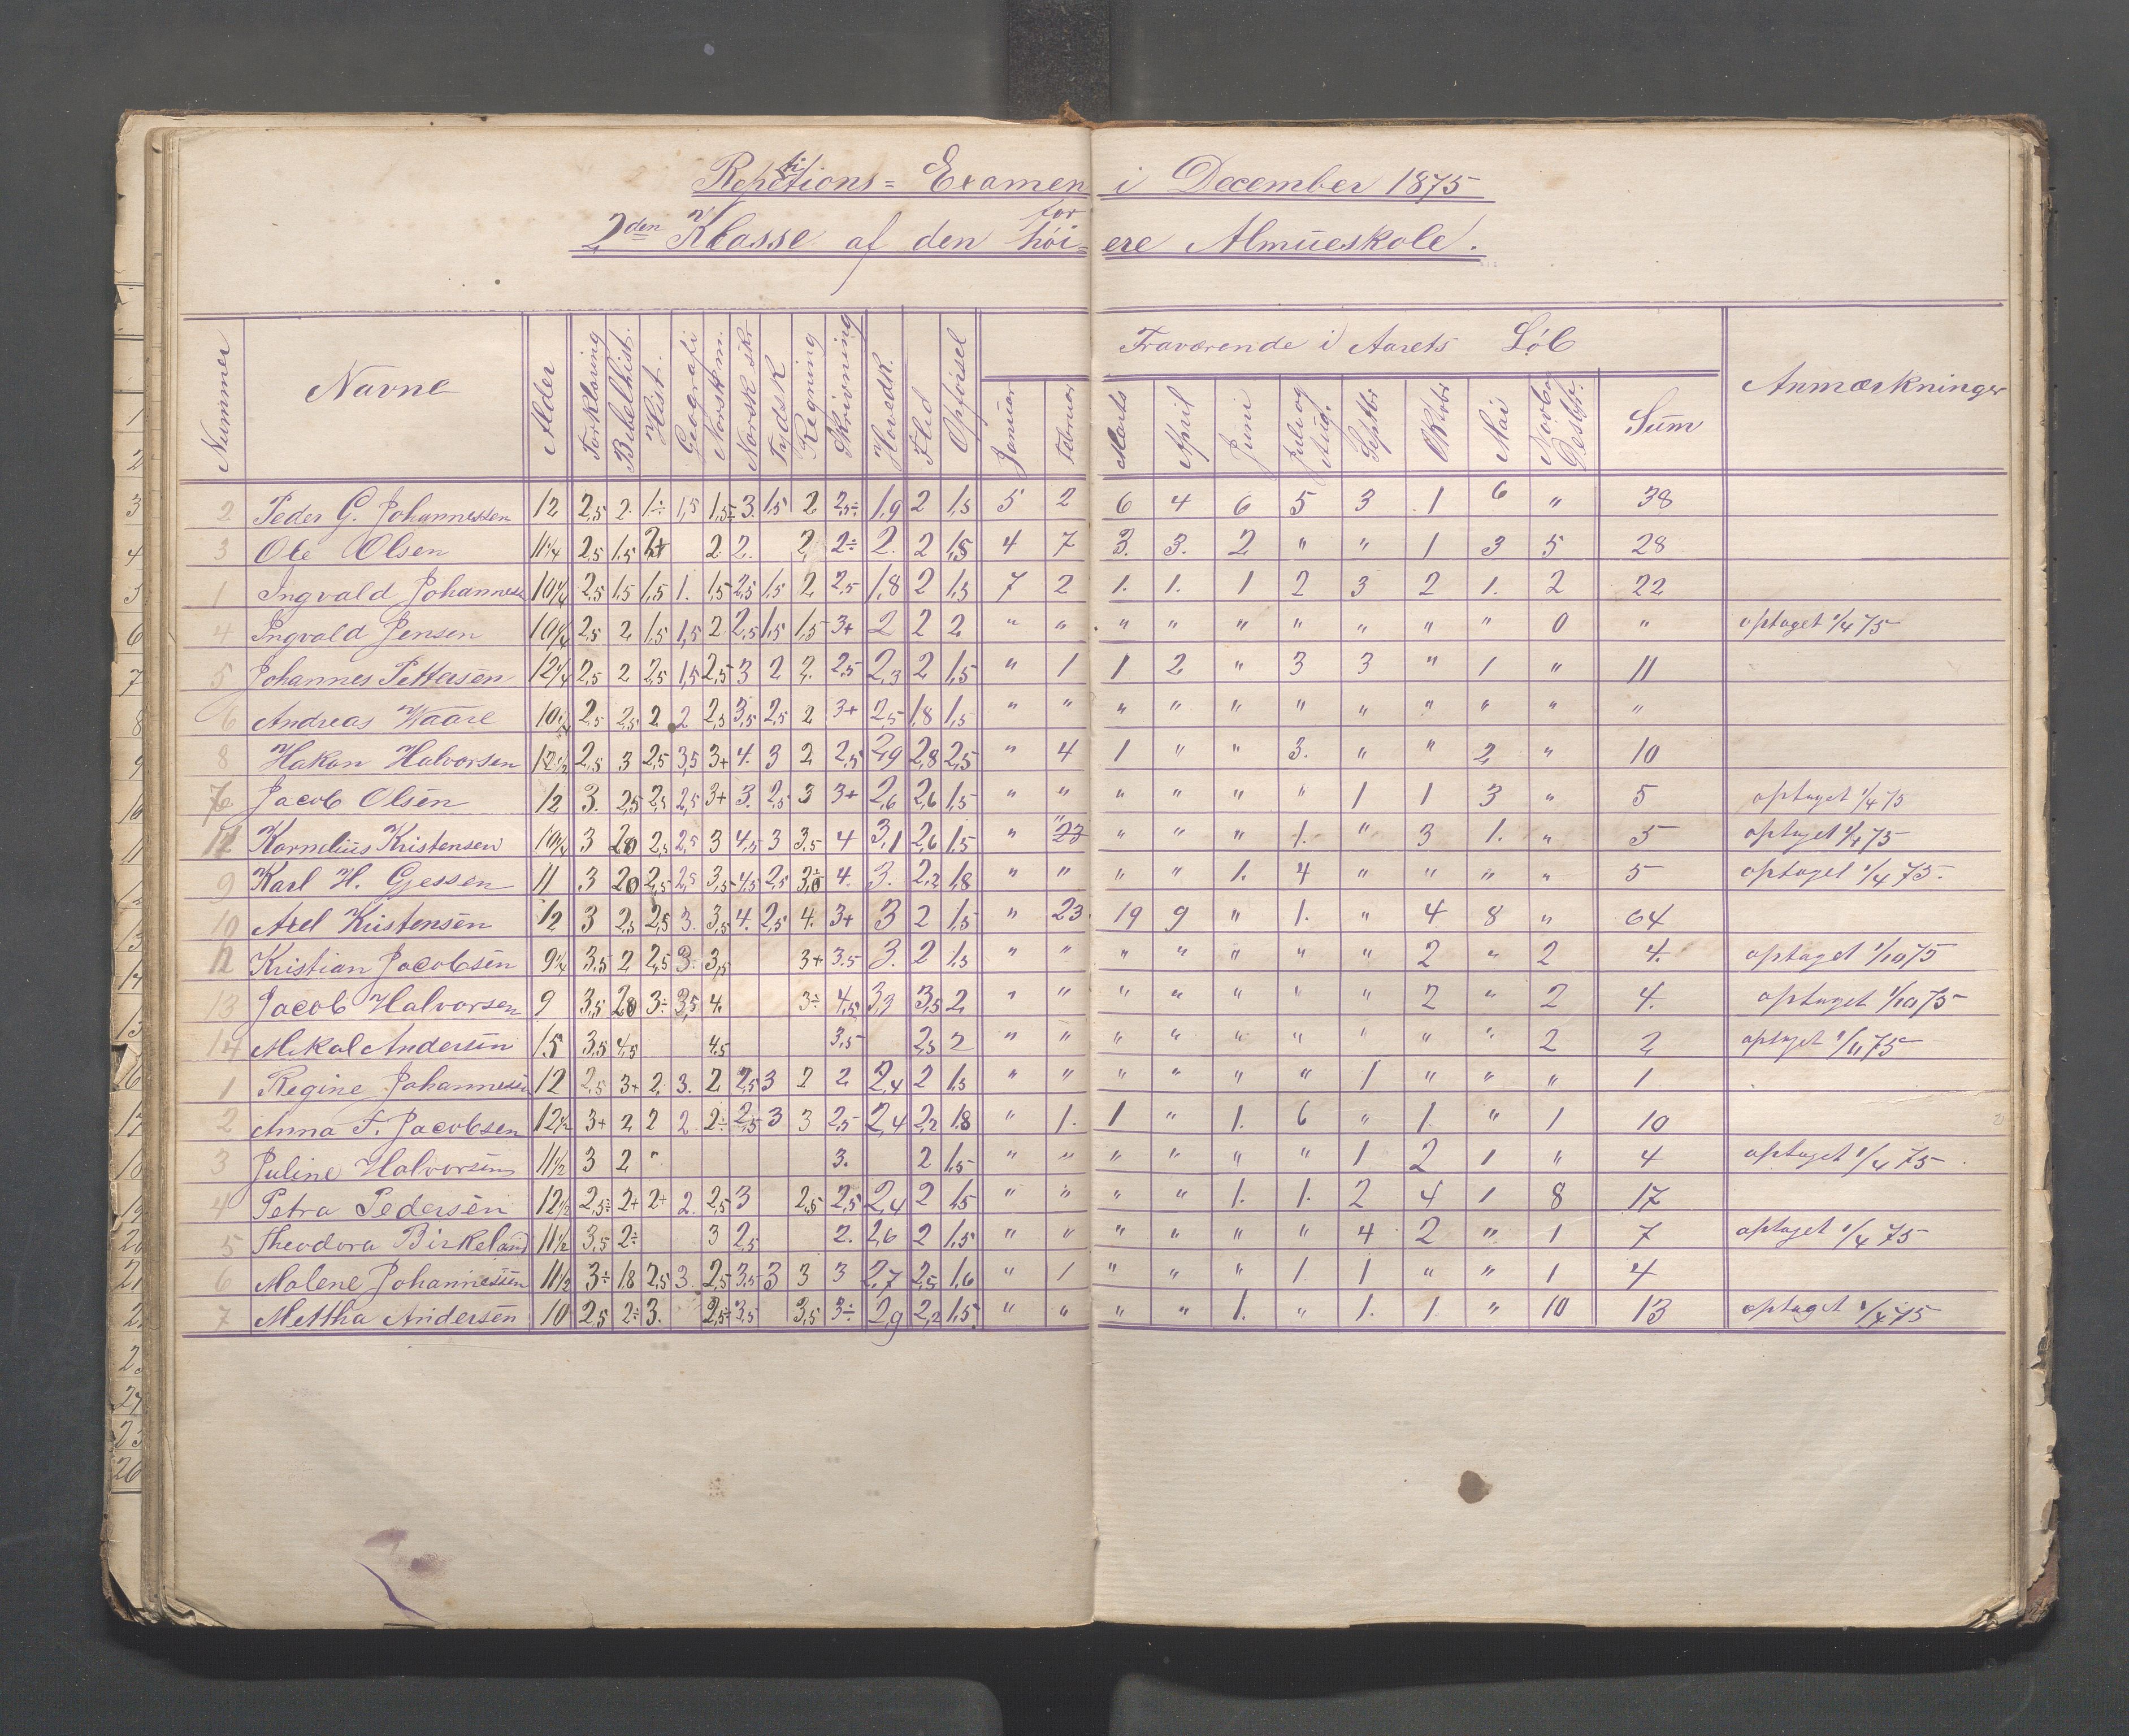 Repetitions = Examen i December 1875
2den Klasse af den høi= ere Almueskole.
for
Nummer Navne Alder Forklaring Bibelhist. Hist. Geografi Norsk m. Norsk skr. Tydsk Regning Skrivning Hovedk. Flid Opførsel Januar Februar Marts April Juni Juli og Aug. Septbr Oktobr Mai Novbr og Desbr. Sum Anmærkninger
Fraværende i Aarets Løb
2 Peder G. Johannessen 12 2,5 2. 1÷ 1,5 1,5÷ 3. 1,5 2 2,5÷ 1,9 2 1,5 5 2 6 4 6 5 3 1 6 " 38
3 Ole Olsen 11 1/4 2,5 1,5 2+ 2. 2. 2, 2÷ 2. 2 1,5 4 7 3. 3. 2 " " 1 3 5 28
1 Ingvald Johannessen 10 1/4 2,5 1,5 1,5 1. 1,5 2,5 1,5 2 2,5 1,8 2 1,5 7 2 1. 1. 1 2 3 2 1. 2 22
4 Ingvald Jensen 10 1/4 2,5 2 1,5 1,5 2 2,5 1,5 1,5 3+ 2 2 2 " " " " " " " " " 0 " optaget 1/4 75
5 Johannes Pettersen 12 1/4 2,5 2 2,5 1,5 2,5 3 2 2. 2,5 2,3 2 1,5 " 1 1 2 " 3 3 " 1 " 11
6 Andreas Waare 10 1/4 2,5 2,5 2 2 2,5 3,5 2,5 2 3+ 2,5 1,8 1,5 " " " " " " " " " " "
8 Hakon Halvorsen 12 1/2 2,5 3 2,5 3,5 3+ 4. 3 2 2,5 2,9 2,8 2,5 " 4 1 " " 3. " " 2 " 10
7 Jacob Olsen 12 3. 2,5 2,5 2,5 3+ 3. 2,5 3 3+ 2,6 2,6 1,5 " " " " " " 1 1 3 " 5 optaget 1/4 75
Kornelius Kristensen 10 1/4 3 2,5 2,5 3 4,5 3 3,5 4 3,1 2,6 1,5 " " " " " 1. " 3 1. " 5 optaget 1/4 75
9 Karl H. Gjessen 11 3 2,5 2,5 3,5 4,5 2,5 4. 3. 2,2 1,8 " " " " 1. 4 " " " " 5 optaget 1/4 75.
10 Axel Kristensen 12 3 2,5 2,5 3. 3,5 4. 2,5 4. 3+ 3 2 1,5 " 23 19 9 " 1. " 4 8 " 64
Kristian Jacobsen 9 1/4 3,5 2 2,5 3. 3,5 3+ 3.5 3. 2 1,5 " " " " " " " 2 " 2 4. optaget 1/10 75
13 Jacob Halvorsen 9 3,5 3÷ 3,5 4. 3÷ 4,5 3,3 3,5 2 " " " " " " " 2 " 2 4. optaget 1/10 75
14 Mikal Andersen 15 3,5 4,5 4,5 3,5 2,5 2 " " " " " " " " " 2 2 optaget 1/11 75
1 Regine Johannessen 12 2,5 3+ 2. 3. 2 2,5 3 2 2 2,4 2 1,5 " " " " " " 1 " " " 1
2 Anna F. Jacobsen 12 1/2 3+ 2 2 2 2÷ 2,5 3 3 2,5 2,4 2,2 1,8 " 1. 1 " 1. 6 " 1. " 1 10
3 Juline Halvorsen 11 1/2 3 2 " 3. 2 1,5 " " " " " " 1 2 1 " 4 optaget 1/4 75
4 Petra Pedersen 12 1/2 2,5÷ 2+ 2+ 2. 2,5 3 2,5 2,5 2,4 2 1,5 " " " " 1. 1. 2 4 1 8 17
5 Theodora Birkeland 11 1/2 3,5 2÷ 3 2,5 2. 2,6 2 1,5 " " " " " " 4 2 " 1 7 optaget 1/4 75
6 Malene Johannessen 11 1/2 3÷ 1,8 2,5 3. 2,5 3,5 3 3 3 2,7 2,5 1,6 " 1 " " " 1. 1 " " 1 4
7 Mettha Andersen 10 2,5 2÷ 3. 2,5÷ 3,5 3,5 3÷ 2,9 2,2 1,5 " " " " 1. " 1. 1. " 10 13 optaget 1/4 75